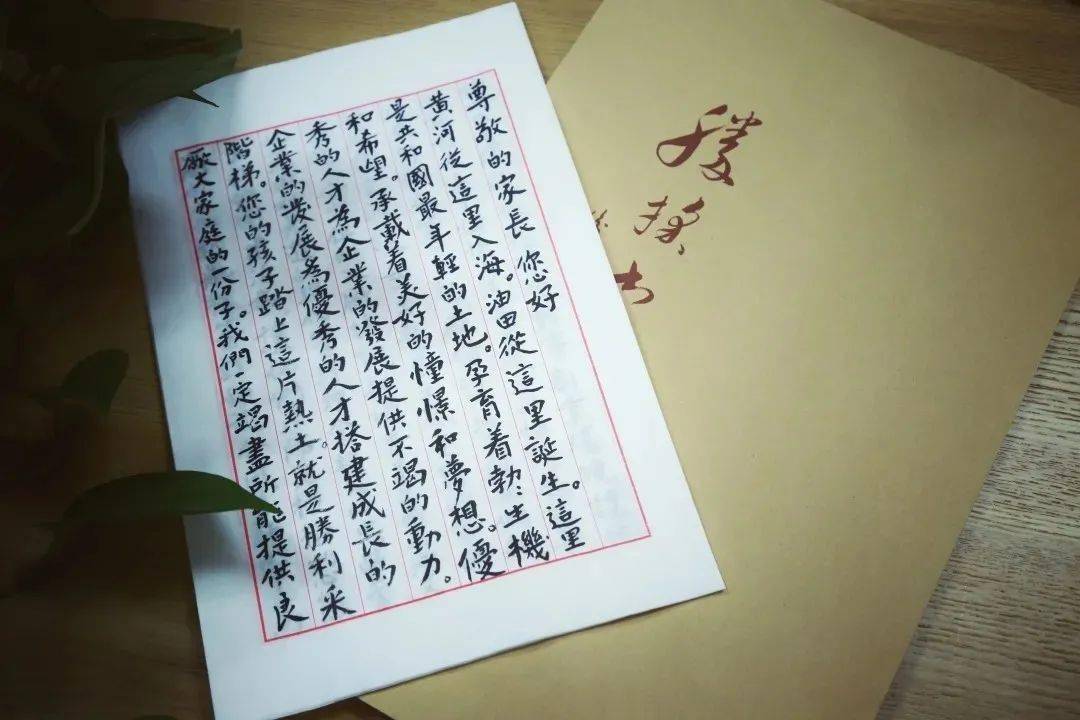 尊敬的家長 您好
黄河從這里入海。油田從這里誕生。這里
是共和國最年輕的土地。孕育着勃〻生機
和希望。承載着美好的憧憬和夢想。優
秀的人才為企業的發展提供不竭的動力。
企業的發展為優秀的人才搭建成長的
階梯。您的孩子踏上這片熱土。就是勝利采
厰大家庭的一份子。我們一定竭盡所能提供良